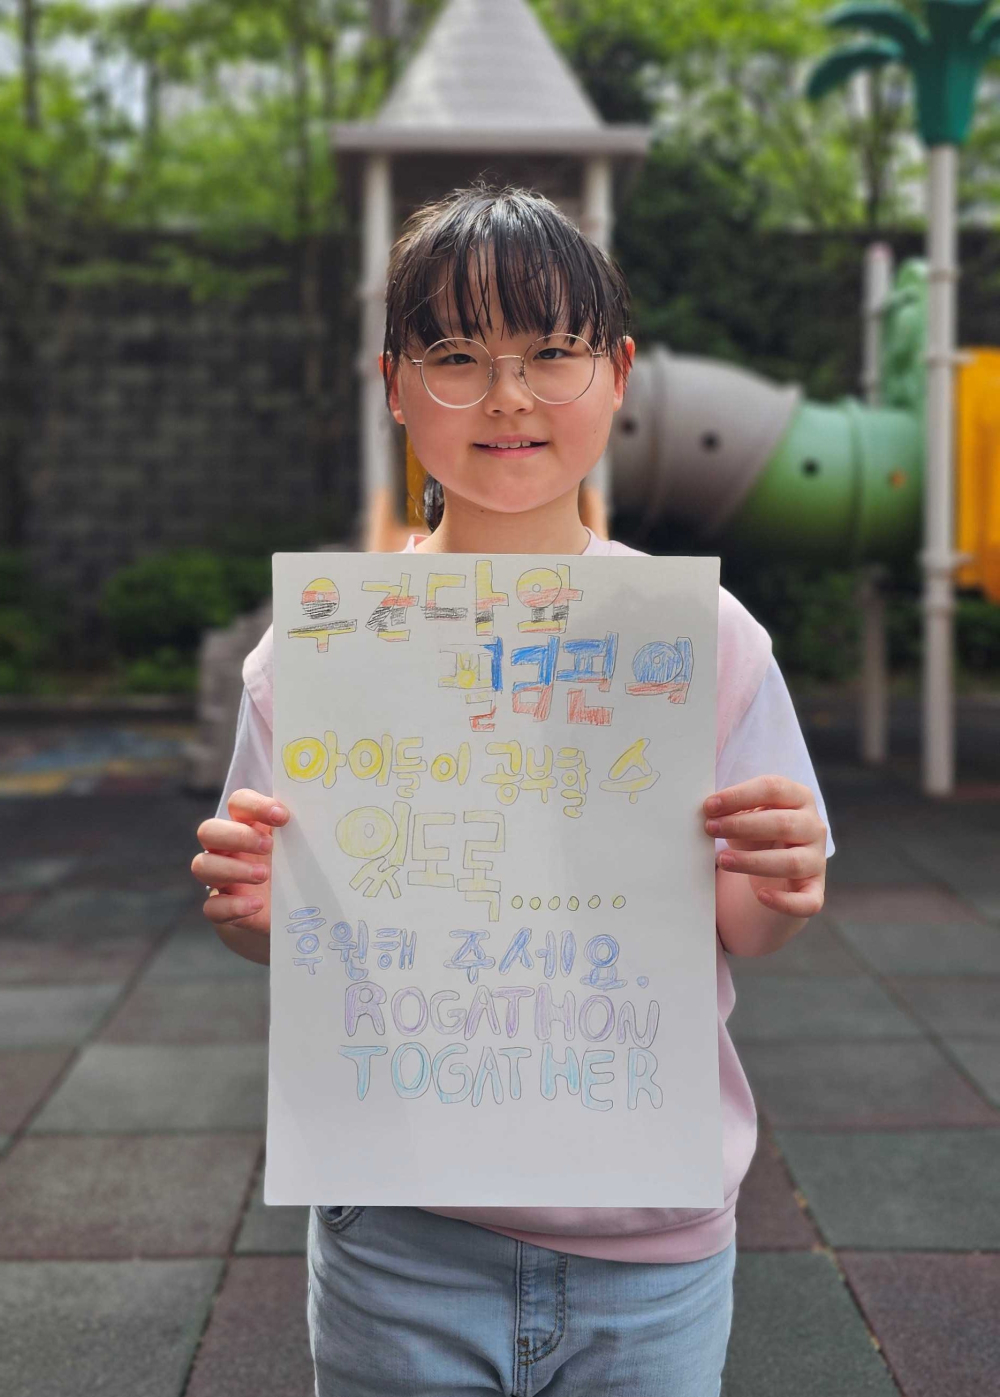 우간다와
필리핀의
아이들이 공부할 수
있도록......
후원해 주세요.
ROGATHON
TOGATHER